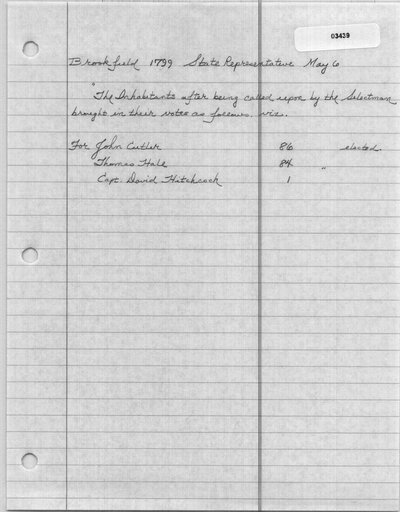 03439
Brookfield 1799 State Representative May 6
"The Inhabitants after being called upon by the Selectman
brought in their votes as follows. viz.
For John Cutler 86 elected.
Thomas Hale 84 "
Capt. David Hitchcock 1